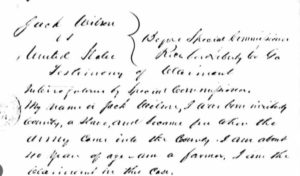 Jack Wilson
vs
United States
Before Special Commissioner
Testimony of Claimant
Interrogatories by Special Commissioner.
My name is Jack Wilson, I was born in
County, a slave, and became free when the
army came into the County. I am about
40 years of age - am a farmer, I am the
claimant in this Case.